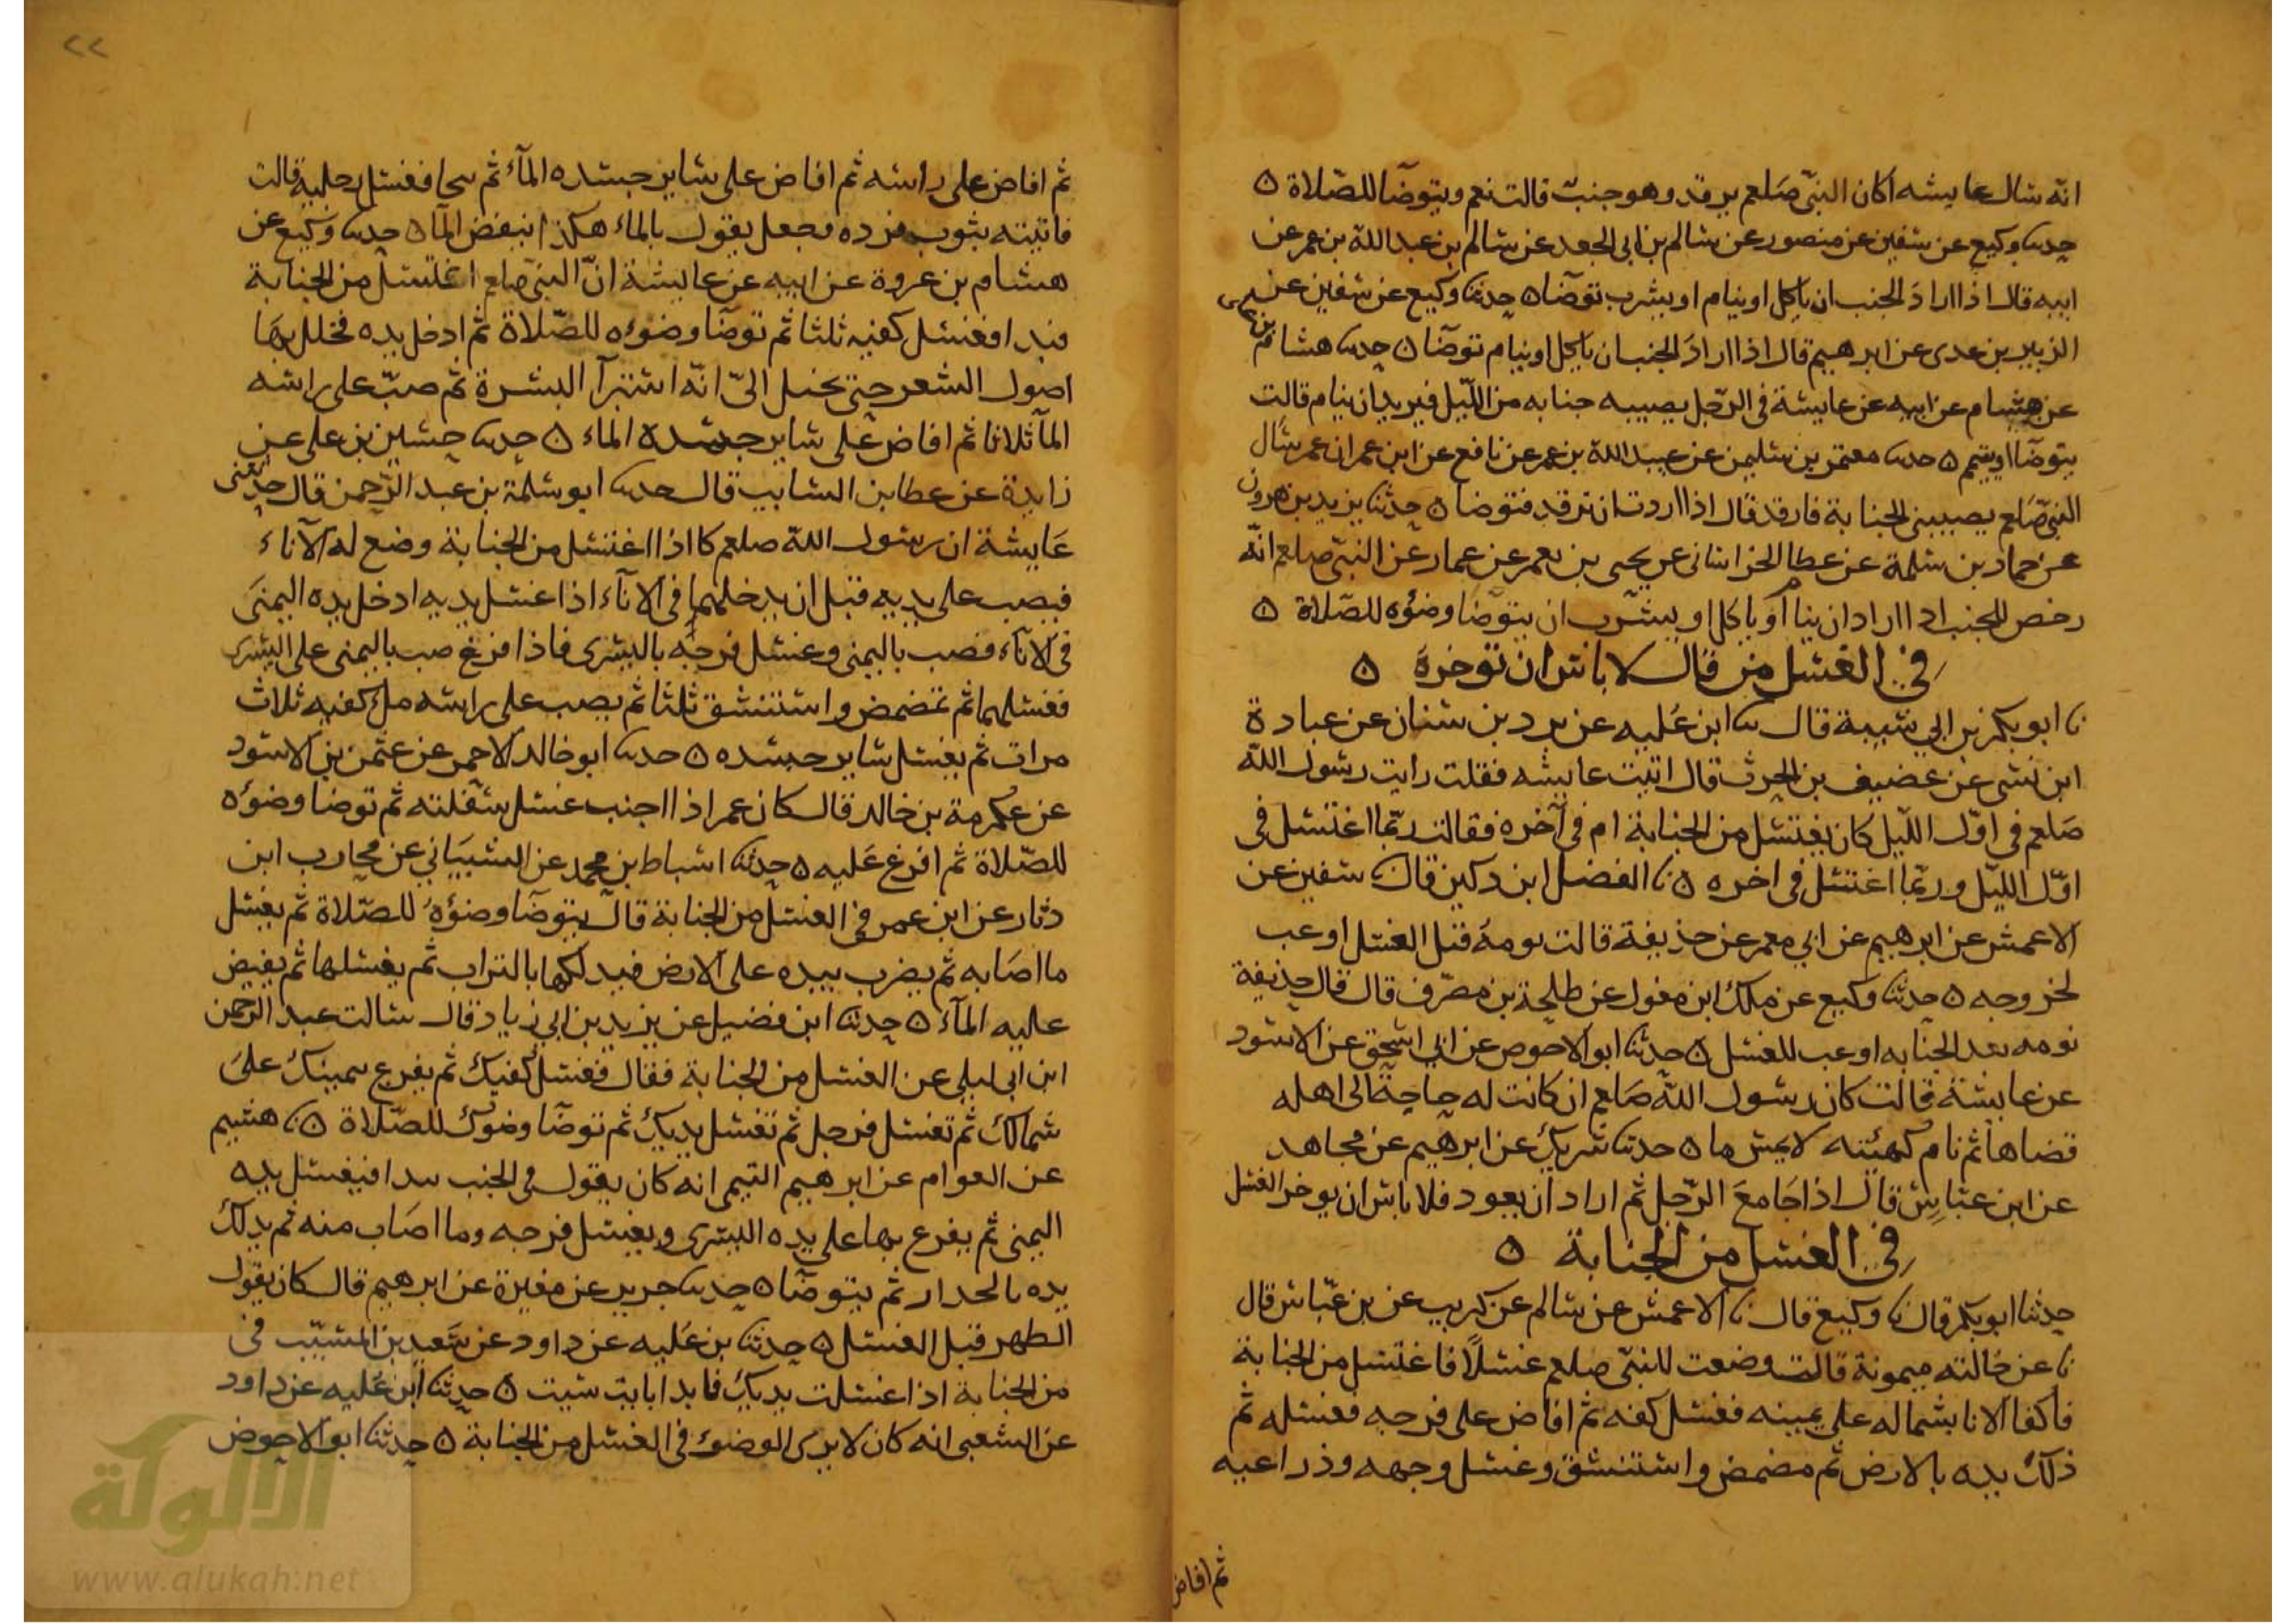 انه سال عايشه اكان النبى صلعم يرقد وهو جنب قالت نعم ويتوضا للصلاة ٥
حدثنا وكيع عن سفين عن منصور عن سالم بن ابى الجعد عن سالم بن عبد الله بن عمر عن
ابيه قال اذا اراد الجنب ان ياكل او ينام او يشرب توضا ٥ حدثنا وكيع عن سفين عن
الزبير بن عدى عن ابرهيم قال اذا اراد الجنب ان ياكل او ينام توضا ٥ حدثنا هشام
عن هشام عن ابيه عن عايشة فى الرجل يصيبه جنابه من الليل فيريد ان ينام قالت
يتوضا او يتيمم ٥ حدثنا معتمر بن سليمن عن عبيد الله بن عمر عن نافع عن ابن عمر ان عمر سال
النبى صلعم يصيبنى الجنابة فارقد قال اذا اردت ان ترقد فتوضا ٥ حدثنا يزيد بن هرون
عن حماد بن سلمة عن عطا الخراسانى عن يحيى بن يعمر عن عمار عن النبى صلعم انه
رخص للجنب اذا اراد ان ينام او ياكل او يشرب ان يتوضا وضوه للصلاة ٥
فى الغسل من قال لا باس ان توخره ٥
نا ابو بكر بن ابي شيبة قال نا ابن علية عن برد بن سنان عن عبادة
ابن نسى عن غضيف بن الحرث قال اتيت عايشه فقلت رايت رسول الله
صلعم فى اول الليل كان يغتسل من الجنابة ام فى آخره فقالت ربما اغتسل فى
اول الليل وربما اغتسل فى اخره ٥ نا الفضل ابن دكين قال نا سفين عن
الاعمش عن ابرهيم عن ابي معمر عن حذيفة قالت نومه قبل الغسل اوعب
لخروجه ٥ حدثنا وكيع عن ملك ابن مغول عن طلحة بن مصرف قال قال حذيفة
نومه بعد الجنابه اوعب للغسل ٥ حدثنا ابو الاحوص عن ابي اسحق عن الاسود
عن عايشة قالت كان رسول الله صلعم ان كانت له حاجة الى اهله
قضاها ثم نام كهئته لا يمس ما ٥ حدثنا شريك عن ابرهيم عن مجاهد
عن ابن عباس قال اذا جامع الرجل ثم اراد ان يعود فلا باس ان يوخر الغسل
فى الغسل من الجنابة ٥
حدثنا ابو بكر قال نا وكيع قال نا الاعمش عن سالم عن كريب عن بن عباس قال
نا عن خالته ميمونة قالت وضعت للنبى صلعم غسلا فاغتسل من الجنابة
فاكفا الانا بشماله على يمينه فغسل كفه ثم افاض على فرجه فغسله ثم
دلك يده بالارض ثم مضمض واستنشق وغسل وجهه وذراعيه
ثم افاض
٢٢
ثم افاض على راسه ثم افاض على ساير جسده المآء ثم تنحا فغسل رجليه قالت
فاتيته بثوب فرده وجعل يقول بالماء هكذا ينفض المآ ٥ حدثنا وكيع عن
هشام بن عروة عن ابيه عن عايشة ان النبى صلعم اغتسل من الجنابة
فبدا فغسل كفيه ثلثا ثم توضا وضوءه للصلاة ثم ادخل يده فخلل بها
اصول الشعر حتى يخيل الى انه استبرآ البشرة ثم صب على راسه
المآ ثلاثا ثم افاض على ساير جسده الماء ٥ حدثنا حسين بن على عن
زايدة عن عطا بن السايب قال حدثنا ابو سلمة بن عبد الرحمن قال حدثتنى
عايشة ان رسول الله صلعم كا اذا اغتسل من الجنابة وضع له الآناء
فيصب على يديه قبل ان يدخلهما فى الانآء اذا غسل يديه ادخل يده اليمنى
فى الانآء فصب باليمنى وغسل فرجه باليسرى فاذا فرغ صب باليمنى على اليسرى
فغسلهما ثم تمضمض واستنشق ثلثا ثم يصب على راسه ملء كفيه ثلاث
مرات ثم يغسل ساير جسده ٥ حدثنا ابو خالد الاحمر عن عثمن بن الاسود
عن عكرمة بن خالد قال كان عمر اذا اجنب غسل سفلته ثم توضا وضوه
للصلاة ثم افرغ عليه ٥ حدثنا اسباط بن محمد عن الشيبانى عن محارب ابن
دثار عن ابن عمر فى الغسل من الجنابة قال يتوضا وضوه للصلاة ثم يغسل
ما اصابه ثم يضرب بيده على الارض فيدلكها بالتراب ثم يغسلها ثم يفيض
عليه المآء ٥ حدثنا ابن فضيل عن يزيد بن ابى زياد قال سالت عبد الرحمن
ابن ابى ليلى عن الغسل من الجنابة فقال فغسل كفيك ثم يفرغ بيمينك على
شمالك ثم تغسل فرجل ثم تغسل يديك ثم توضا وضوك للصلاة ٥ نا هشيم
عن العوام عن ابرهيم التيمى انه كان يقول فى الجنب يبدا فيغسل يده
اليمنى ثم يفرغ بها على يده اليسرى ويغسل فرجه وما اصاب منه ثم يدلك
يده بالجدار ثم يتوضا ٥ حدثنا جرير عن مغيرة عن ابرهيم قال كان يقول
الطهر قبل الغسل ٥ حدثنا بن عليه عن داود عن سعيد بن المسيب فى
من الجنابة اذا غسلت يديك فابدا بايت شيت ٥ حدثنا ابن عليه عن داود
عن الشعبى انه كان لا يرى الوضوء فى الغسل من الجنابة ٥ حدثنا ابو الاحوص
الألوكة
www.alukah.net